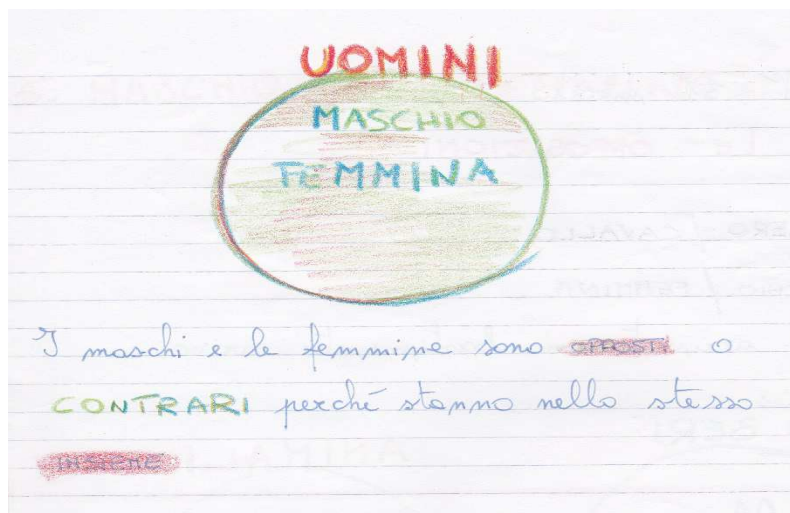 UOMINI
MASCHIO
FEMMINA
I maschi e le femmine sono OPPOSTI o
CONTRARI perché stanno nello stesso
INSIEME